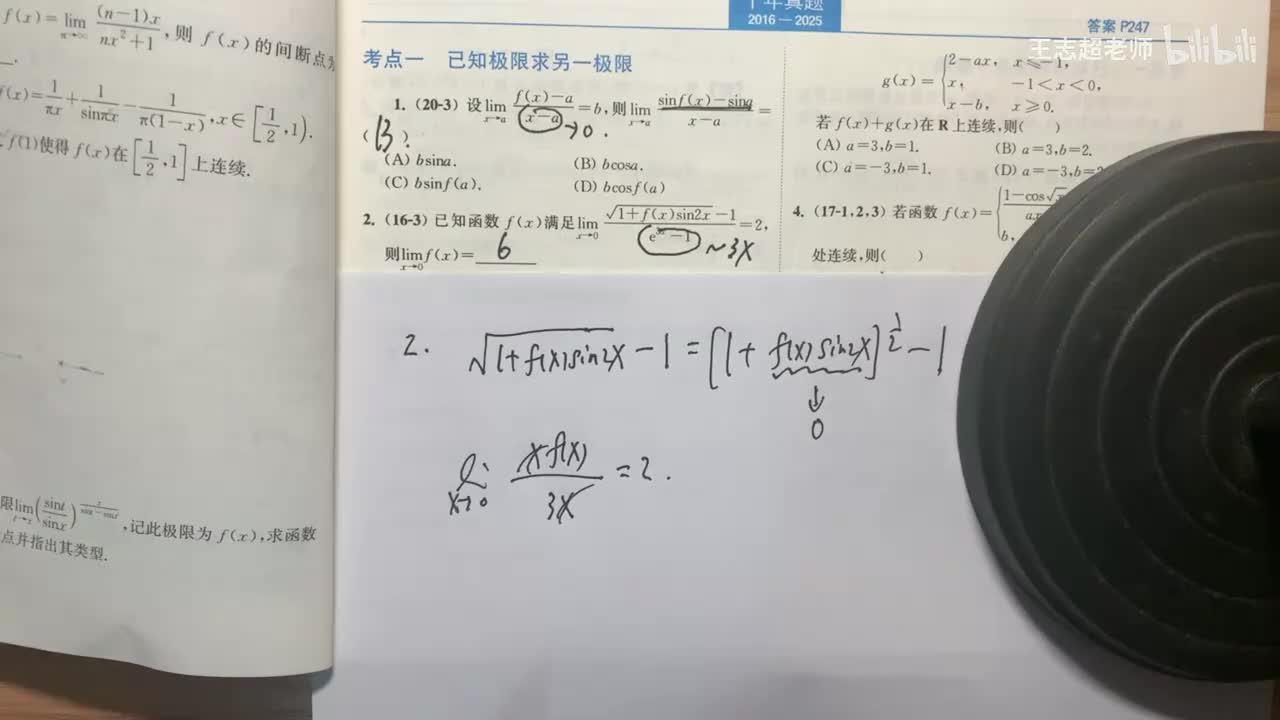 f(x)=lim n→∞ (n-1)x/(nx²+1), 则 f(x)的间断点为
f(x)=1/(πx)+1/(sinπx)-1/(π(1-x)), x∈[1/2,1).
f(1)使得 f(x)在[1/2,1]上连续.
限lim t→x (sint/sinx)^(x/(sint-sinx)), 记此极限为 f(x), 求函数
点并指出其类型.
十年真题
2016—2025
答案 P247
王志超老师 bilibili
考点一 已知极限求另一极限
1. (20-3) 设 lim x→a (f(x)-a)/(x-a)=b, 则 lim x→a (sinf(x)-sina)/(x-a)=
→0.
( B ).
(A) bsina. (B) bcosa.
(C) bsinf(a). (D) bcosf(a)
2. (16-3) 已知函数 f(x)满足 lim x→0 (√(1+f(x)sin2x)-1)/(e^(3x)-1)=2,
~3x
则 lim x→0 f(x)= 6
g(x)={2-ax, x≤-1,
x, -1<x<0,
x-b, x≥0.
若 f(x)+g(x)在 R 上连续, 则( )
(A) a=3, b=1. (B) a=3, b=2.
(C) a=-3, b=1. (D) a=-3, b=2
4. (17-1,2,3) 若函数 f(x)={(1-cos√x)/ax
b,
处连续, 则( )
2. √(1+f(x)sin2x) -1=[1+f(x)sin2x]^(1/2) -1
↓
0
lim x→0 xf(x)/3x =2.